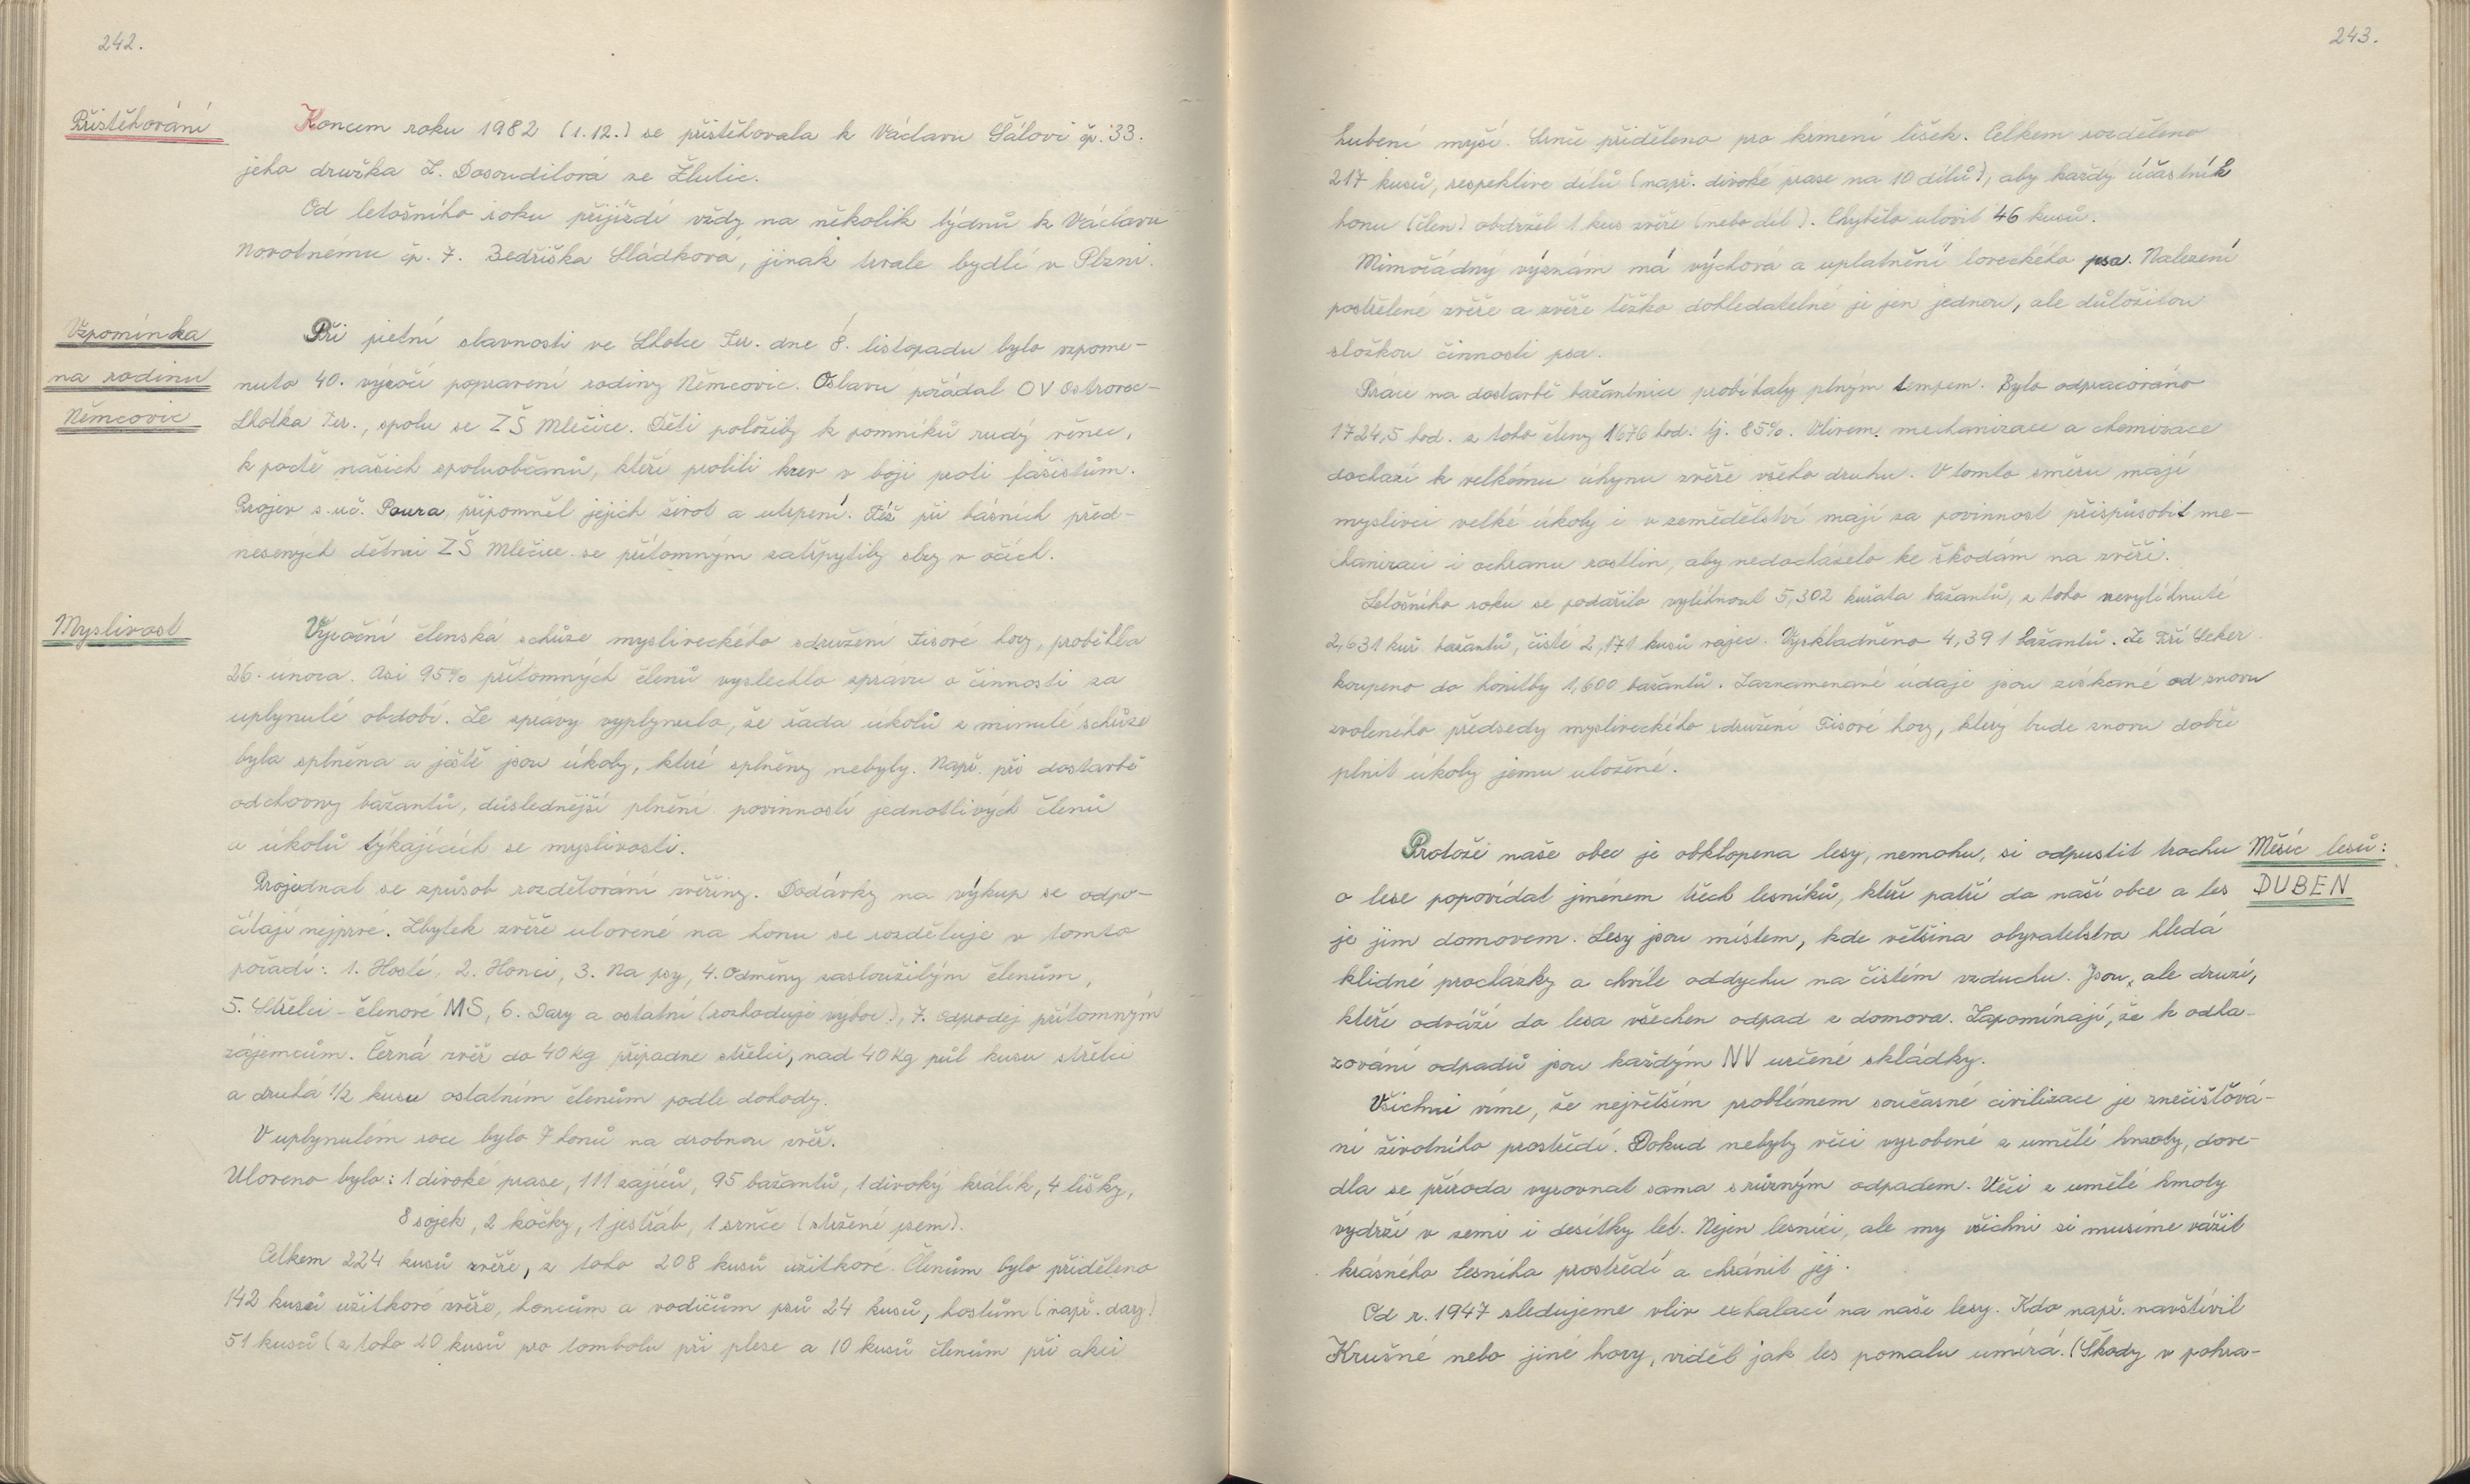 242.
Přistěhování
Koncem roku 1982 (1.12.) se přistěhovala k Václavu Šálovi čp. 33.
jeho družka Z. Dosoudilová ze Žlutic.
Od letošního roku přijíždí vždy na několik týdnů k Václavu
Novotnému čp. 7. Bedřiška Sládková, jinak trvale bydlí v Plzni.
Vzpomínka
na rodinu
Němcovic
Při pietní slavnosti ve Lhotce Ter. dne 8. listopadu bylo vzpome-
nuto 40. výročí popravení rodiny Němcovic. Oslavu pořádal OV Ostrovec-
Lhotka Ter., spolu se ZŠ Mlečice. Děti položily k pomníků rudý věnec,
k poctě našich spoluobčanů, kteří prolili krev v boji proti fašistům.
Projev s. uč. Poura, připomněl jejich život a utrpení. Též při básních před-
nesených dětmi ZŠ Mlečice se přítomným zatřpytily slzy v očích.
Myslivost
Výroční členská schůze mysliveckého sdružení Tisové hory, proběhla
26. února. Asi 95% přítomných členů vyslechlo zprávu o činnosti za
uplynulé období. Ze zprávy vyplynulo, že řada úkolů z minulé schůze
byla splněna a ještě jsou úkoly, které splněny nebyly. Např. při dostavbě
odchovny bažantů, důslednější plnění povinností jednotlivých členů
a úkolů týkajících se myslivosti.
Projednal se způsob rozdělování zvěřiny. Dodávky na výkup se odpo-
čítají nejprvé. Zbytek zvěře ulovené na honu se rozděluje v tomto
pořadí: 1. Hosté, 2. Honci, 3. Na psy, 4. Odměny zasloužilým členům,
5. Střelci - členové MS, 6. Dary a ostatní (rozhoduje vybor), 7. Odprodej přítomným
zájemcům. Černá zvěř do 40 kg připadne střelci, nad 40 kg půl kusu střelci
a druhá 1/2 kusu ostatním členům podle dohody.
V uplynulém roce bylo 7 honů na drobnou zvěř.
Uloveno bylo: 1 divoké prase, 111 zajíců, 95 bažantů, 1 divoký králík, 4 lišky,
8 sojek, 2 kočky, 1 jestřáb, 1 srnče (stržené psem).
Celkem 224 kusů zvěře, z toho 208 kusů užitkové. Členům bylo přiděleno
142 kusů užitkové zvěře, honcům a vodičům psů 24 kusů, hostům (např. dary)
51 kusů (z toho 20 kusů pro tombolu při plese a 10 kusů členům při akci
243.
hubení myší. Srnče přiděleno pro krmení lišek. Celkem rozděleno
217 kusů, respektive dílů (např. divoké prase na 10 dílů), aby každý účastník
honu (člen) obdržel 1 kus zvěře (nebo díl). Chybělo ulovit 46 kusů.
Mimořádný význám má výchova a uplatnění loveckého psa. Nalezení
postřelené zvěře a zvěře těžko dohledatelné je jen jednou, ale důležitou
složkou činnosti psa.
Práce na dostavbě bažantnice probíhaly plným tempem. Bylo odpracováno
1724,5 hod. z toho členy 1676 hod. tj. 85%. Vlivem mechanizace a chemizace
dochází k velkému úhynu zvěře všeho druhu. V tomto směru mají
myslivci velké úkoly i v zemědělství mají za povinnost přispůsobit me-
chanizaci i ochranu rostlin, aby nedocházelo ke škodám na zvěři.
Letošního roku se podařilo vylíhnout 5,302 kuřata bažantů, z toho nevylíhnuté
2,631 kuř. bažantů, čisté 2,171 kusů vajec. Vyskladněno 4,391 bažantů. Ze Tří Seker
koupeno do honitby 1,600 bažantů. Zaznamenané údaje jsou získané od znovu
zvoleného předsedy mysliveckého sdružení Tisové hory, který bude znovu dobře
plnit úkoly jemu uložené.
Měsíc lesů:
DUBEN
Protože naše obec je obklopena lesy, nemohu, si odpustit trochu
o lese popovídat jménem třech lesníků, kteří patří do naší obce a les
je jim domovem. Lesy jsou místem, kde většina obyvatelstva hledá
klidné procházky a chvíle oddychu na čistém vzduchu. Jsou, ale druzí,
kteří odváží do lesa všechen odpad z domova. Zapomínají, že k odha-
zování odpadů jsou každým NV určené skládky.
Všichni víme, že největším problémem současné civilizace je znečišťová-
ní životního prostředí. Dokud nebyly věci vyrobené z umělé hmoty, dove-
dla se příroda vyrovnat sama s různým odpadem. Věci z umělé hmoty
vydrží v zemi i desítky let. Nejen lesníci, ale my všichni si musíme vážit
krásného lesního prostředí a chránit jej.
Od r. 1947 sledujeme vliv exhalací na naše lesy. Kdo např. navštívil
Krušné nebo jiné hory, viděl jak les pomalu umírá. (Škody v pohra-